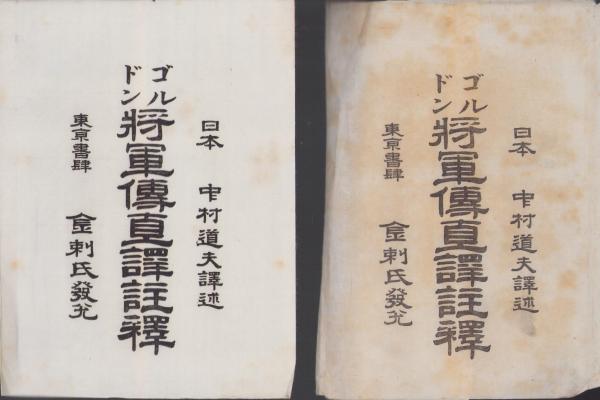 日本 中村道夫譯述
ゴルドン將軍傳直譯註釋
東京書肆 金刺氏發兌
日本 中村道夫譯述
ゴルドン將軍傳直譯註釋
東京書肆 金刺氏發兌